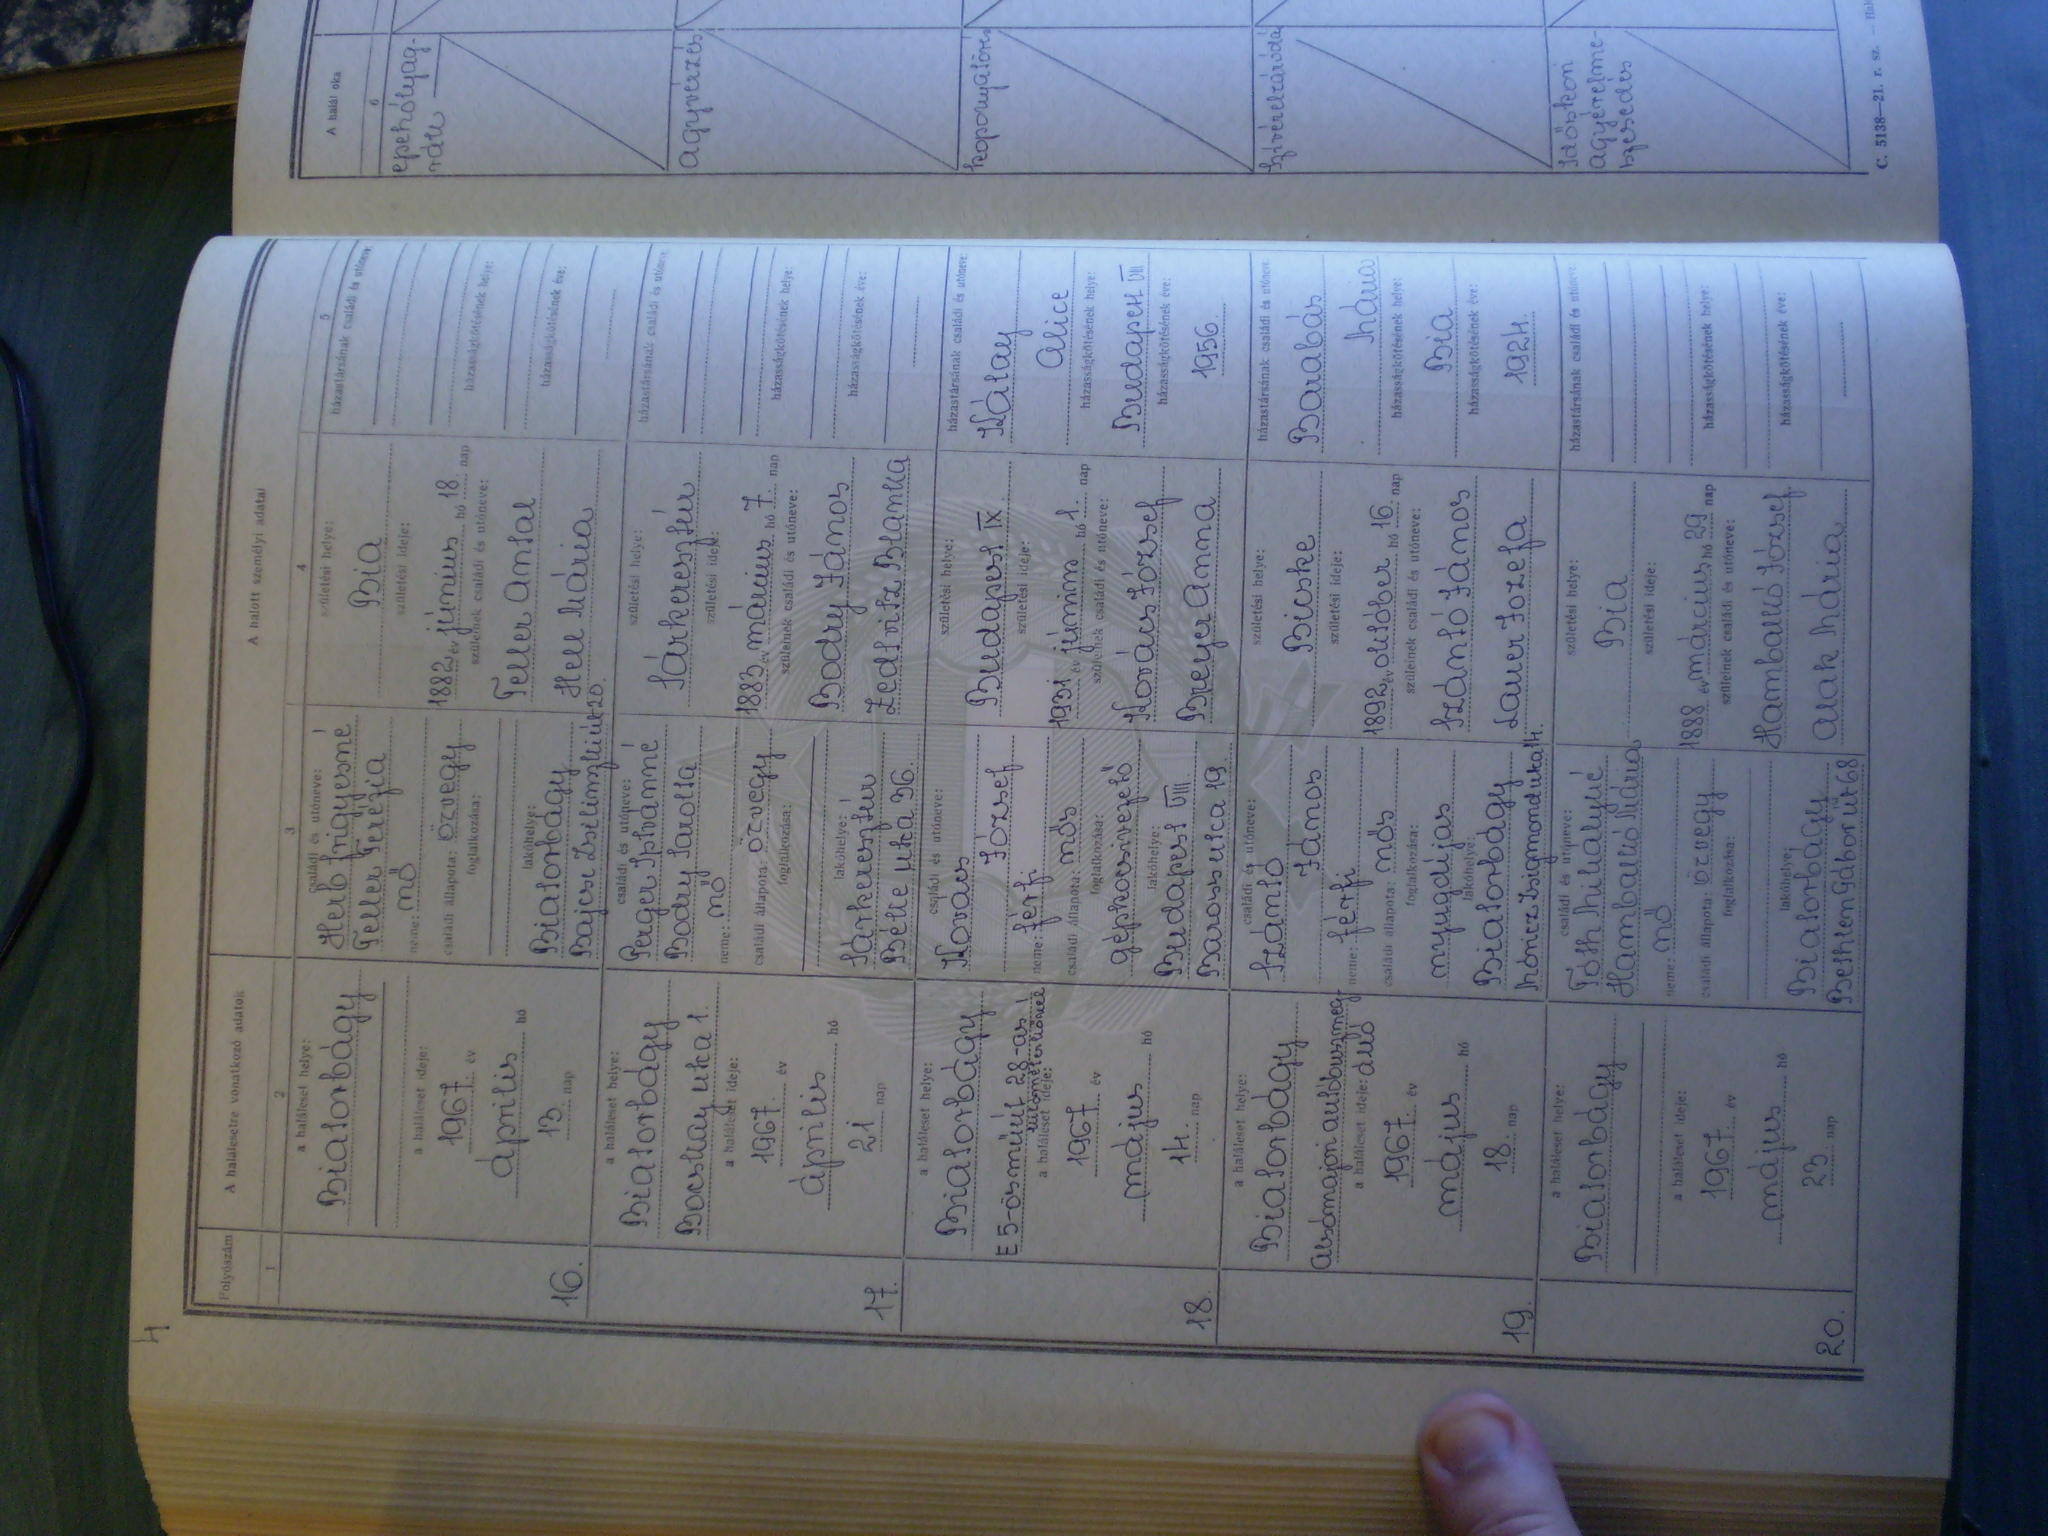 4
Folyószám
A halálesetre vonatkozó adatok
A halott személyi adatai
1
2
3
4
5
a haláleset helye:
Biatorbágy
a haláleset ideje:
1967 év
április hó
13 nap
16.
családi és utóneve:
Herb Frigyesné
Teller Terézia
neme: nő
családi állapota: özvegy
foglalkozása:
lakóhelye:
Biatorbágy
Bajcsi Zsilinszki út 20.
születési helye:
Bia
születési ideje:
1882 év június hó 18. nap
szüleinek családi és utóneve:
Teller Antal
Hell Mária
házastársának családi és utóneve:
házasságkötésének helye:
házasságkötésének éve:
a haláleset helye:
Biatorbágy
Bocskay utca 1.
a haláleset ideje:
1967. év
április hó
21 nap
17.
családi és utóneve:
Perger Istvánné
Body Sarolta
neme: nő
családi állapota: özvegy
foglalkozása:
lakóhelye:
Sárkeresztúr
Béke utca 36.
születési helye:
Sárkeresztúr
születési ideje:
1883 év március hó 7. nap
szüleinek családi és utóneve:
Body János
Zedlvitz Blanka
házastársának családi és utóneve:
házasságkötésének helye:
házasságkötésének éve:
a haláleset helye:
Biatorbágy
E 5-ös műút 28-as
kilométerkőnél
a haláleset ideje:
1967 év
május hó
14. nap
18.
családi és utóneve:
Kovács
József
neme: férfi
családi állapota: nős
foglalkozása:
gépkocsivezető
lakóhelye:
Budapest VIII.
Baross utca 19.
születési helye:
Budapest IX.
születési ideje:
1931 év június hó 1. nap
szüleinek családi és utóneve:
Kovács József
Breyer Anna
házastársának családi és utóneve:
Kálay
Alice
házasságkötésének helye:
Budapest VIII
házasságkötésének éve:
1956.
a haláleset helye:
Biatorbágy
Alsómajori autóbuszmeg-
a haláleset ideje: álló
1967 év
május hó
18. nap
19.
családi és utóneve:
Szántó
János
neme: férfi
családi állapota: nős
foglalkozása:
nyugdíjas
lakóhelye:
Biatorbágy
Móricz Zsigmond utca 14.
születési helye:
Bicske
születési ideje:
1892 év október hó 16. nap
szüleinek családi és utóneve:
Szántó János
Lauer Jozefa
házastársának családi és utóneve:
Barabás
Mária
házasságkötésének helye:
Bia
házasságkötésének éve:
1924.
a haláleset helye:
Biatorbágy
a haláleset ideje:
1967 év
május hó
23 nap
20.
családi és utóneve:
Tóth Mihályné
Hamballió Mária
neme: nő
családi állapota: özvegy
foglalkozása:
lakóhelye:
Biatorbágy
Bethlen Gábor út 68
születési helye:
Bia
születési ideje:
1888 év március hó 29 nap
szüleinek családi és utóneve:
Hamballió József
Alak Mária
házastársának családi és utóneve:
házasságkötésének helye:
házasságkötésének éve:
A halál oka
6
epehólyag-
rák
agyvérzés
koponyatörés
szívelzáródás
Időskori
agyérelme-
szesedés
C. 5138—21. r. sz.